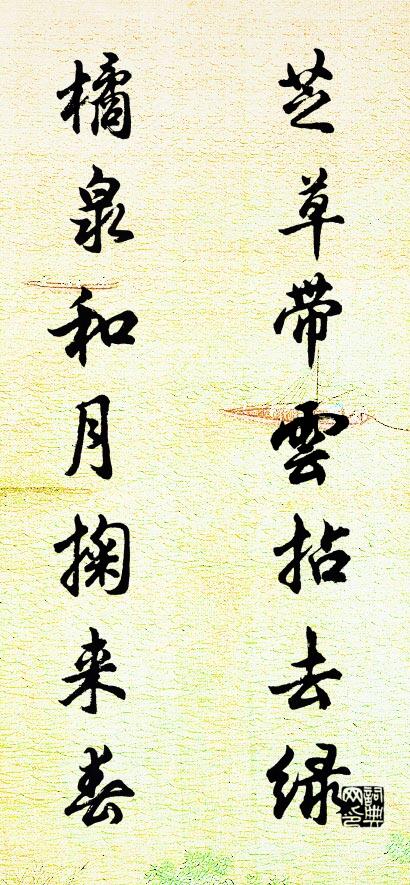 芝草带雲拈去绿
橘泉和月掬来春
詞典网